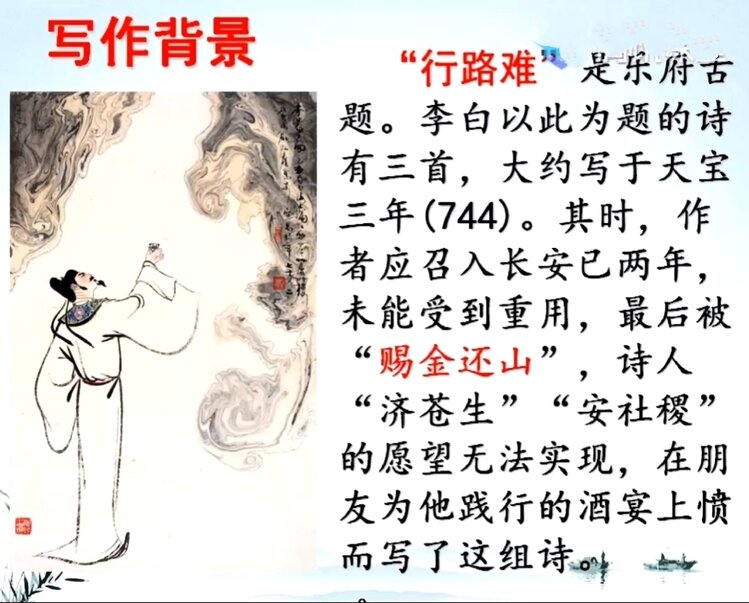 写作背景
“行路难”是乐府古
题。李白以此为题的诗
有三首，大约写于天宝
三年(744)。其时，作
者应召入长安已两年，
未能受到重用，最后被
“赐金还山”，诗人
“济苍生”“安社稷”
的愿望无法实现，在朋
友为他践行的酒宴上愤
而写了这组诗。